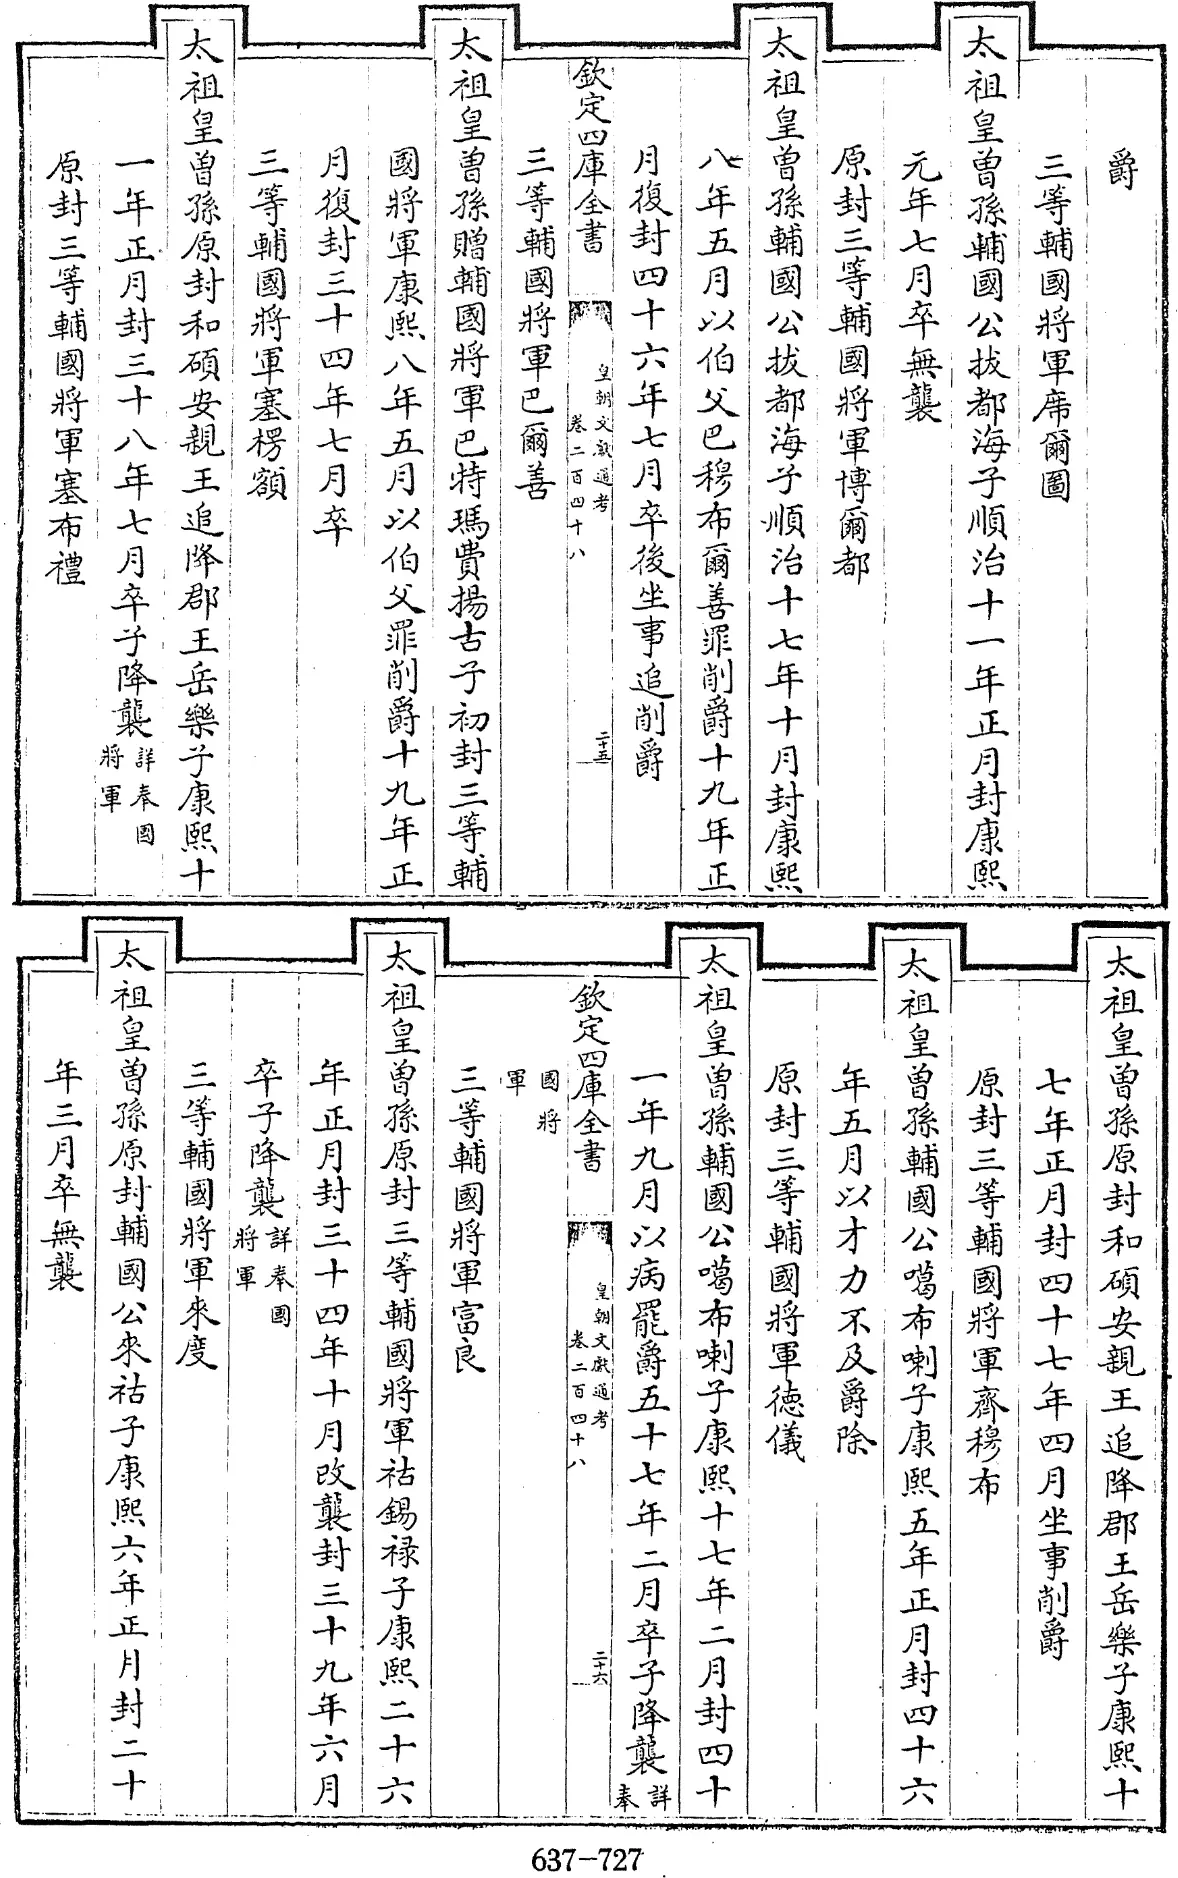 爵
三等輔國將軍席爾圖
太祖皇曽孫輔國公拔都海子順治十一年正月封康熙
元年七月卒無襲
原封三等輔國將軍博爾都
太祖皇曽孫輔國公拔都海子順治十七年十月封康熙
八年五月以伯父巴穆布爾善罪削爵十九年正
月復封四十六年七月卒後坐事追削爵
欽定四庫全書
皇朝文獻通考
卷二百四十八
二十五
三等輔國將軍巴爾善
太祖皇曽孫贈輔國將軍巴特瑪費揚古子初封三等輔
國將軍康熙八年五月以伯父罪削爵十九年正
月復封三十四年七月卒
三等輔國將軍塞楞額
太祖皇曽孫原封和碩安親王追降郡王岳樂子康熙十
一年正月封三十八年七月卒子降襲詳奉國
將軍
原封三等輔國將軍塞布禮
太祖皇曽孫原封和碩安親王追降郡王岳樂子康熙十
七年正月封四十七年四月坐事削爵
原封三等輔國將軍齊穆布
太祖皇曽孫輔國公噶布喇子康熙五年正月封四十六
年五月以才力不及爵除
原封三等輔國將軍德儀
太祖皇曽孫輔國公噶布喇子康熙十七年二月封四十
一年九月以病罷爵五十七年二月卒子降襲詳
奉
欽定四庫全書
皇朝文獻通考
卷二百四十八
二十六
國將
軍
三等輔國將軍富良
太祖皇曽孫原封三等輔國將軍祜錫祿子康熙二十六
年正月封三十四年十月改襲封三十九年六月
卒子降襲詳奉國
將軍
三等輔國將軍來度
太祖皇曽孫原封輔國公來祜子康熙六年正月封二十
年三月卒無襲
637-727